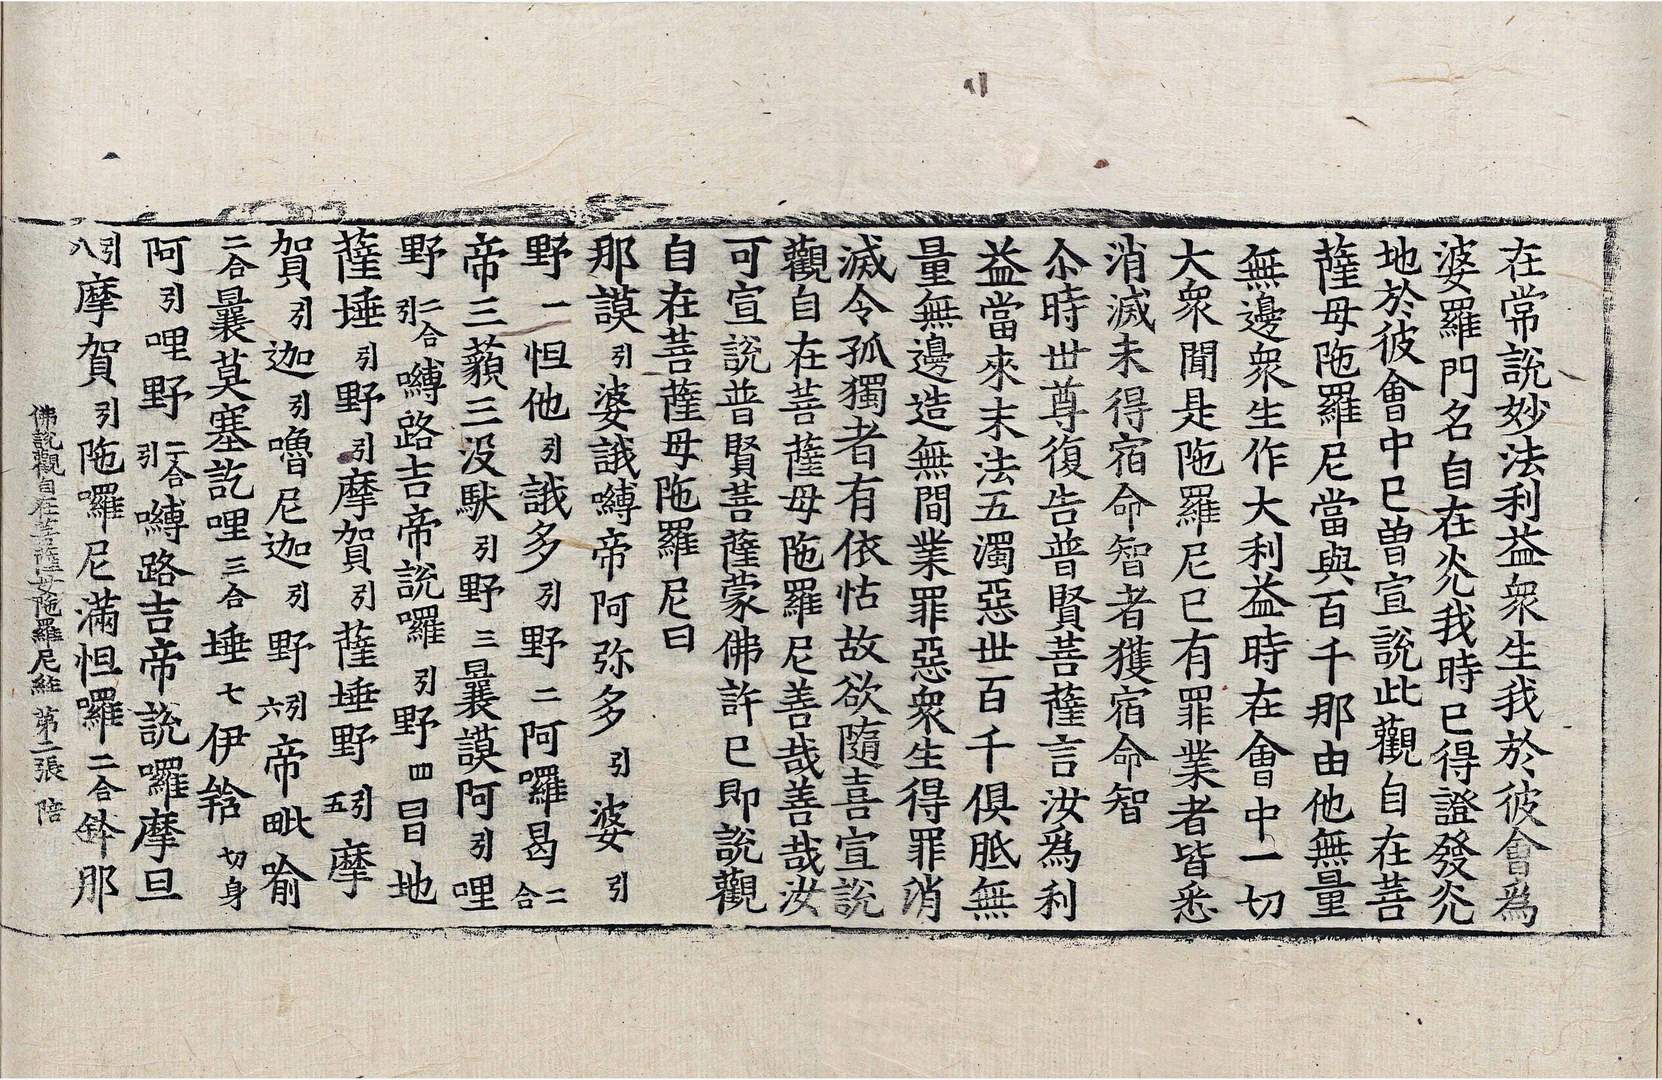 在常說妙法利益衆生我於彼會為
婆羅門名自在光我時已得證發光
地於彼會中已曾宣說此觀自在菩
薩母陁羅尼當與百千那由他無量
無邊衆生作大利益時在會中一切
大衆聞是陁羅尼已有罪業者皆悉
消滅未得宿命智者獲宿命智
尒時世尊復告普賢菩薩言汝爲利
益當來末法五濁惡世百千俱胝無
量無邊造無間業罪惡衆生得罪消
滅令孤獨者有依怙故欲隨喜宣說
觀自在菩薩母陁羅尼善哉善哉汝
可宣說普賢菩薩蒙佛許已即說觀
自在菩薩母陁羅尼曰
那謨引婆誐嚩帝阿弥多引婆引
野一怛他引誐多引野二阿囉曷二合
帝三藐三沒馱引野三曩謨阿引哩
野二合引嚩路吉帝說囉引野四冒地
薩埵引野引摩賀引薩埵野引五摩
賀引迦引嚕尼迦引野引六帝毗喻
二合曩莫塞訖哩三合埵七伊䅧切身
阿引哩野二合引嚩路吉帝說囉摩旦
引八摩賀引陁囉尼滿怛囉二合鉢那
佛說觀自在菩薩母陁羅尼經 第二張 陪